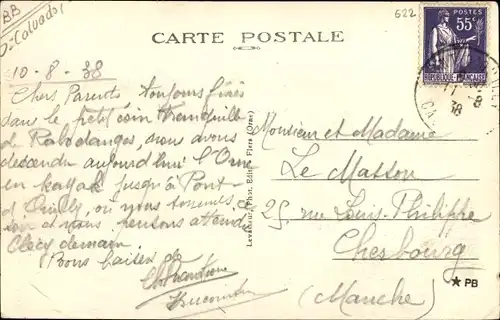 BB
D-Calvados
522
CARTE POSTALE
POSTES
55c
RÉPUBLIQUE FRANÇAISE
10-8-38
Chers Parents toujours fixés
dans le petit coin tranquille
de Rabodanges, nous avons
descendu aujourd'hui l'Orne
en kayak jusqu'à Pont
d'Ouilly, où nous
soir et nous pensons attend
Clécy demain.
Bons baisers de
Monsieur et Madame
Le Masson
25, rue Louis-Philippe
Cherbourg
(Manche)
Phot. Édit. Flers (Orne)
★ PB